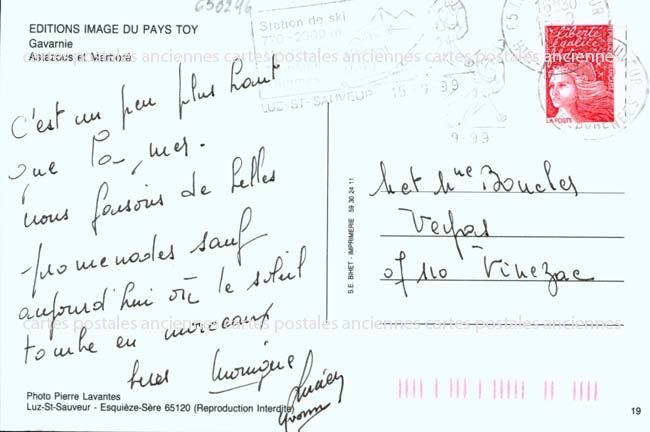 650246
EDITIONS IMAGE DU PAYS TOY
Gavarnie
Astazous et Marboré
Station de ski
LUZ-ST-SAUVEUR 15-9-99
9-99
16H30
Liberté
égalité
LA POSTE
cartes postales anciennes cartes postales anciennes cartes postales anciennes
C'est un peu plus haut
que la mer.
nous faisons de belles
promenades sauf
aujourd'hui où le soleil
tombe en morceaux
Monique
Lucien
Yvonne
S.E. BIHET - IMPRIMERIE 59 30 24 11
Met Mme Boucles
07110 Vinezac
cartes postales anciennes cartes postales anciennes cartes postales anciennes
Photo Pierre Lavantes
Luz-St-Sauveur - Esquièze-Sère 65120 (Reproduction Interdite)
19